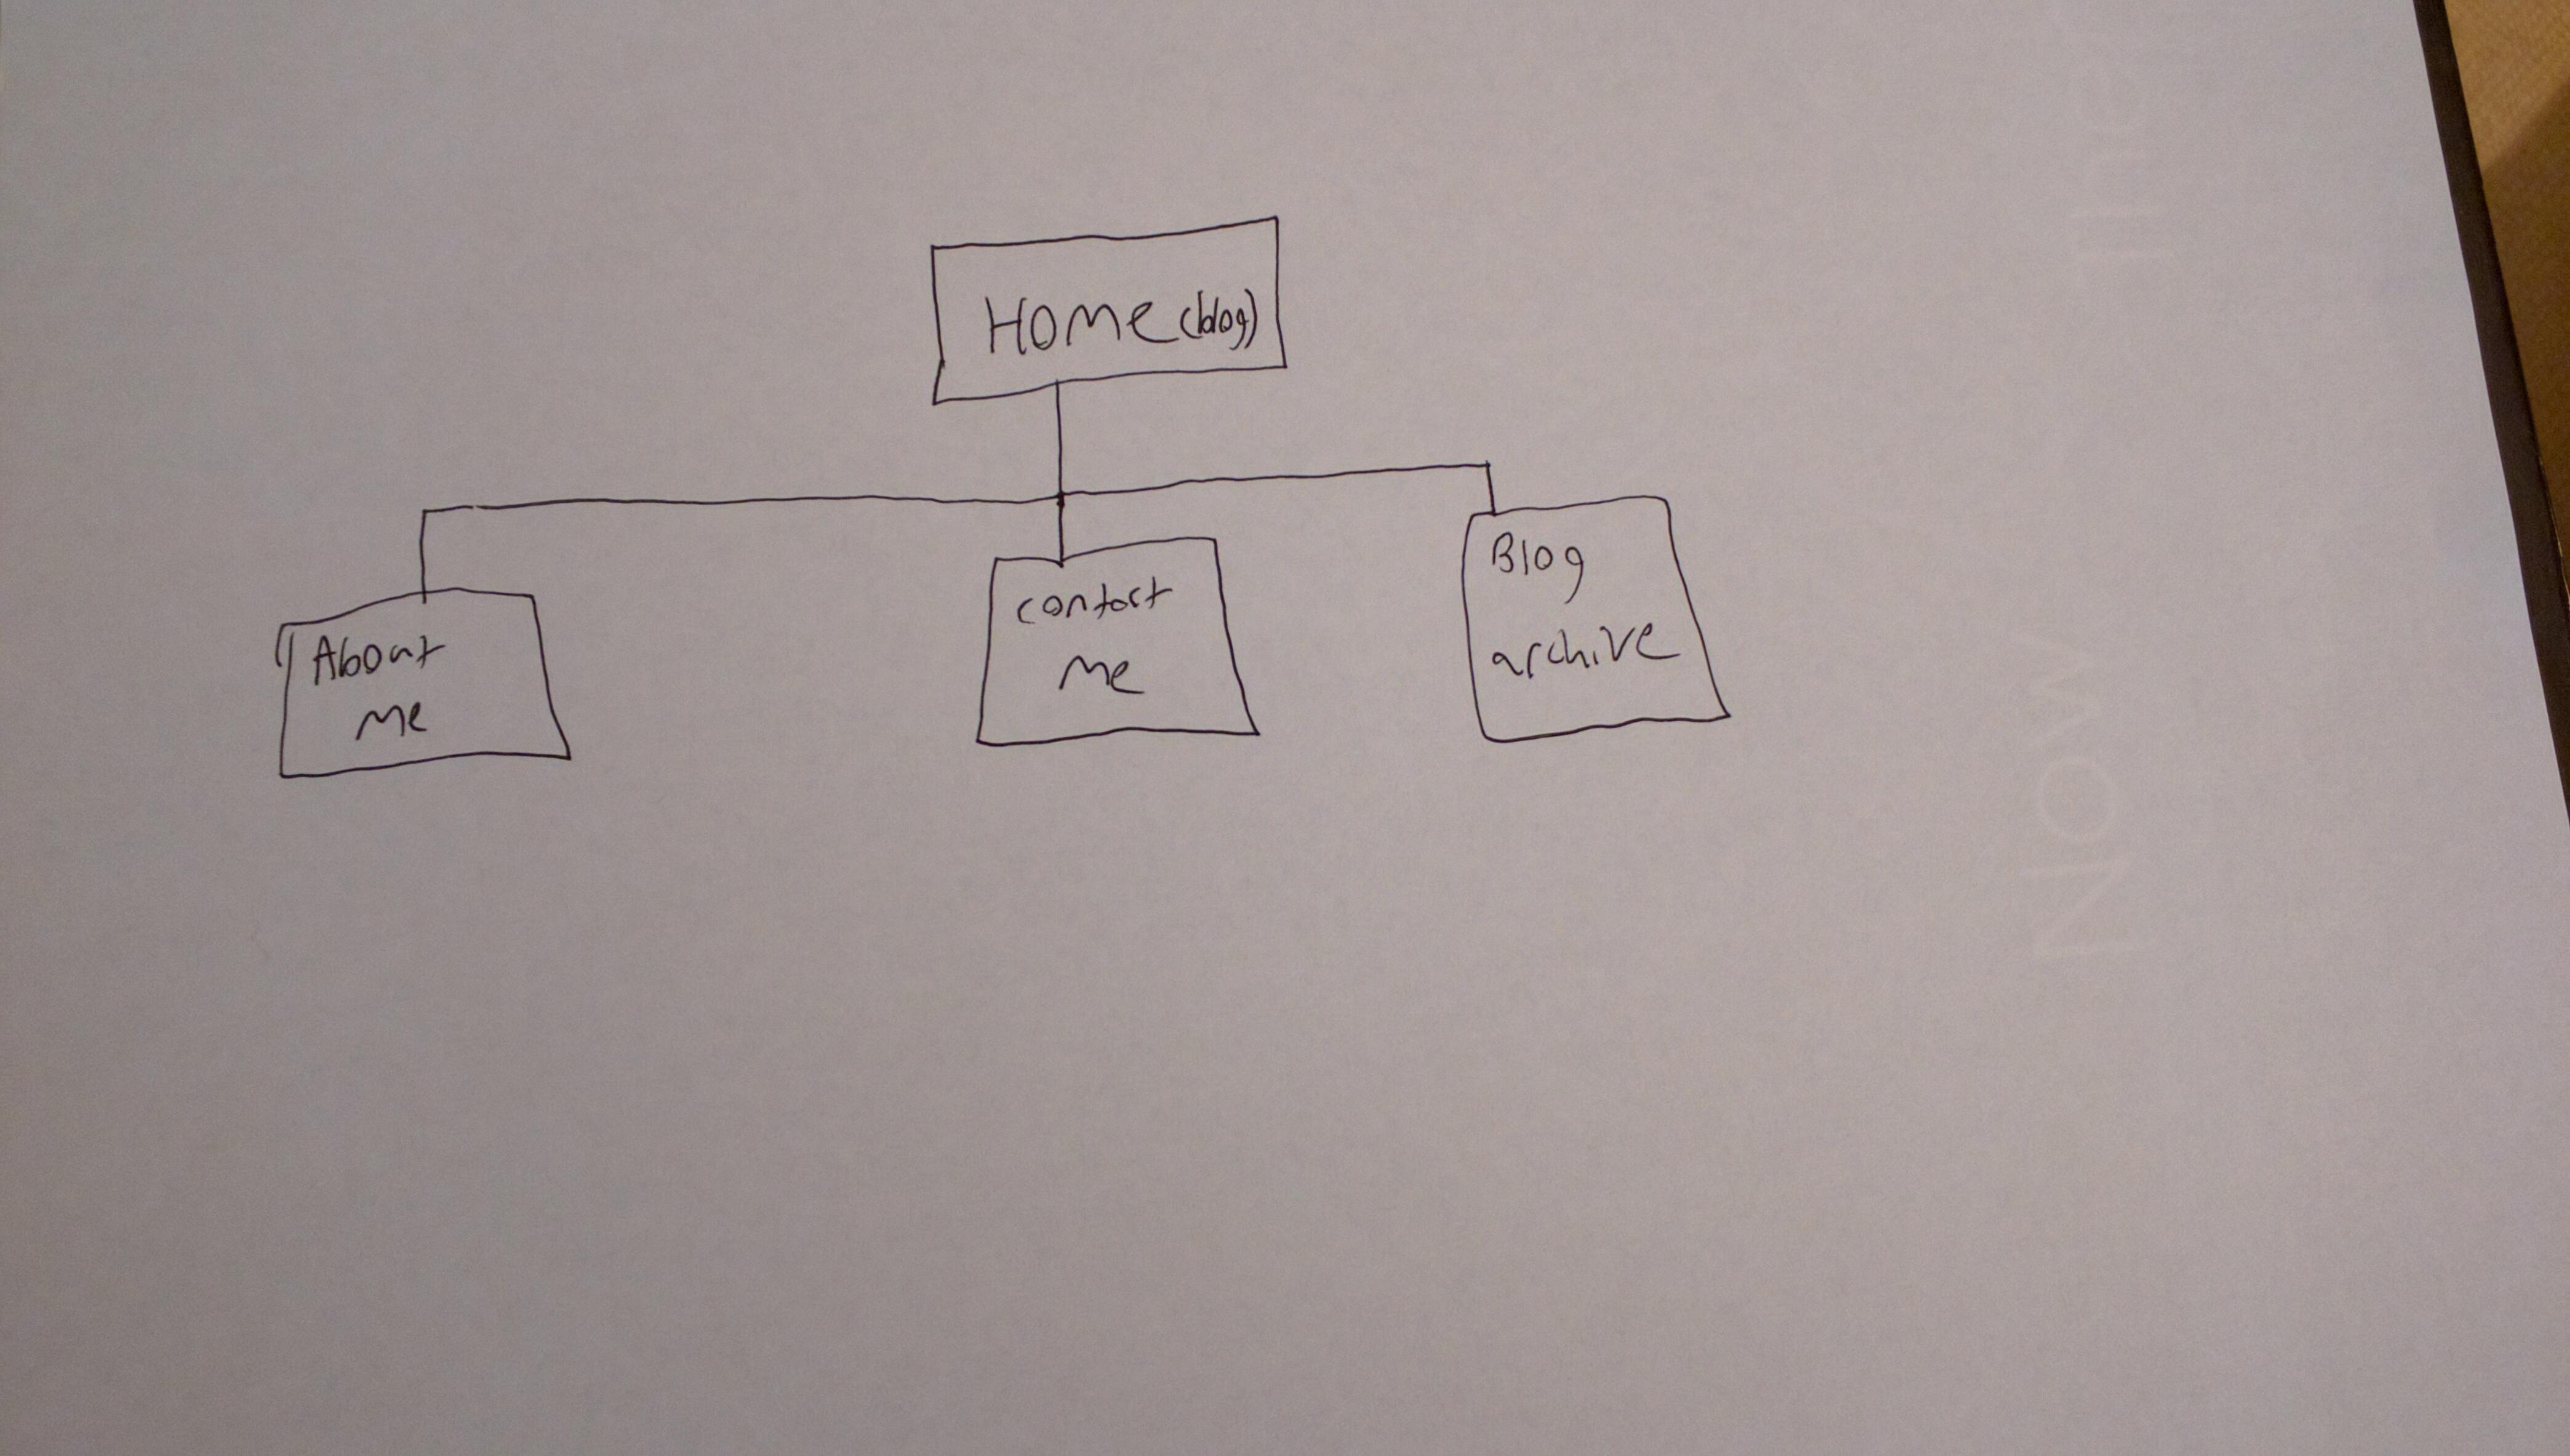 Home (blog)
About
me
contact
me
Blog
archive
Now